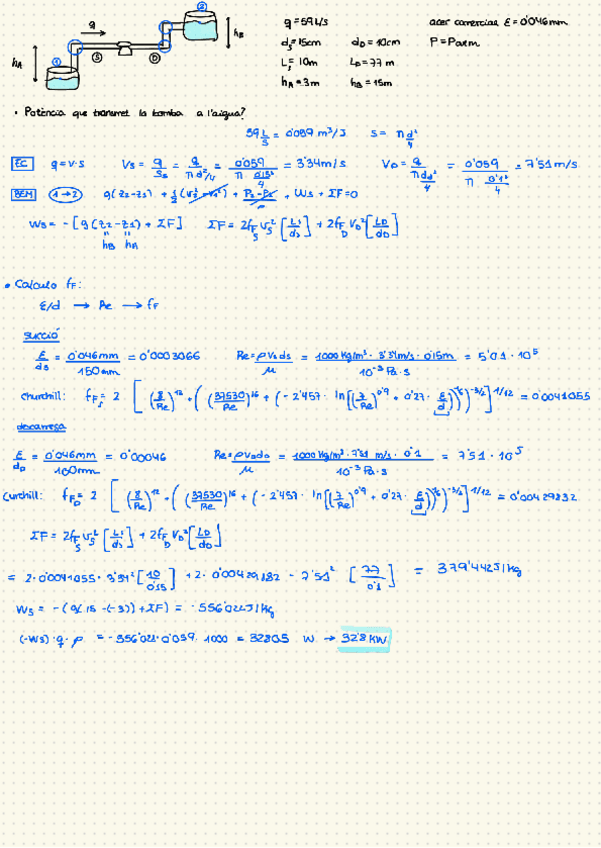 q = 59 L/s
acer comercial ε = 0'046 mm
ds = 15cm
dD = 10cm
P = Patm
Ls = 10m
LD = 77 m
hA = 3m
hB = 15m
q
hA
hB
1
2
S
D
• Potència que transmet la bomba a l'aigua?
59 L/s = 0'059 m³/s
S = π d²/4
EC q = v·s Vs = q/Ss = q/(π d²/4) = 0'059/(π 0'15²/4) = 3'34 m/s VD = q/(π dd²/4) = 0'059/(π 0'1²/4) = 7'51 m/s
BEM 1→2 g(z2-z1) + 1/2 (v2²-v1²) + (P2-P1)/ρ + Ws + ΣF = 0
Ws = -[g(z2-z1) + ΣF] ΣF = 2fFs vs² [Ls/ds] + 2fFD VD² [LD/dD]
hB hA
• Calculo fF:
ε/d → Re → fF
succió
ε/ds = 0'046mm/150mm = 0'0003066 Re = ρVsds/μ = 1000 Kg/m³ · 3'34m/s · 0'15m / 10⁻³ Pa·s = 5'01·10⁵
Churchill: fFs = 2 [(8/Re)¹² + ((37530/Re)¹⁶ + (-2'457 · ln[(7/Re)^0'9 + 0'27 · ε/d])¹⁶)^-3/2]^1/12 = 0'0041055
descarrega
ε/dD = 0'046mm/100mm = 0'00046 Re = ρVDdD/μ = 1000Kg/m³ · 7'51 m/s · 0'1 / 10⁻³ Pa·s = 7'51·10⁵
Curchill: fFD = 2 [(8/Re)¹² + ((37530/Re)¹⁶ + (-2'457 · ln[(7/Re)^0'9 + 0'27 · ε/d])¹⁶)^-3/2]^1/12 = 0'00429832
ΣF = 2fFs vs² [Ls/ds] + 2fFD VD² [LD/dD]
= 2·0'0041055 · 3'34² [10/0'15] + 2·0'00429182 · 7'51² [77/0'1] = 379'442J/kg
Ws = -(g(15-(-3)) + ΣF) = -556'022J/kg
(-Ws)·q·ρ = -556'022·0'059·1000 = 32805 W → 32'8 KW